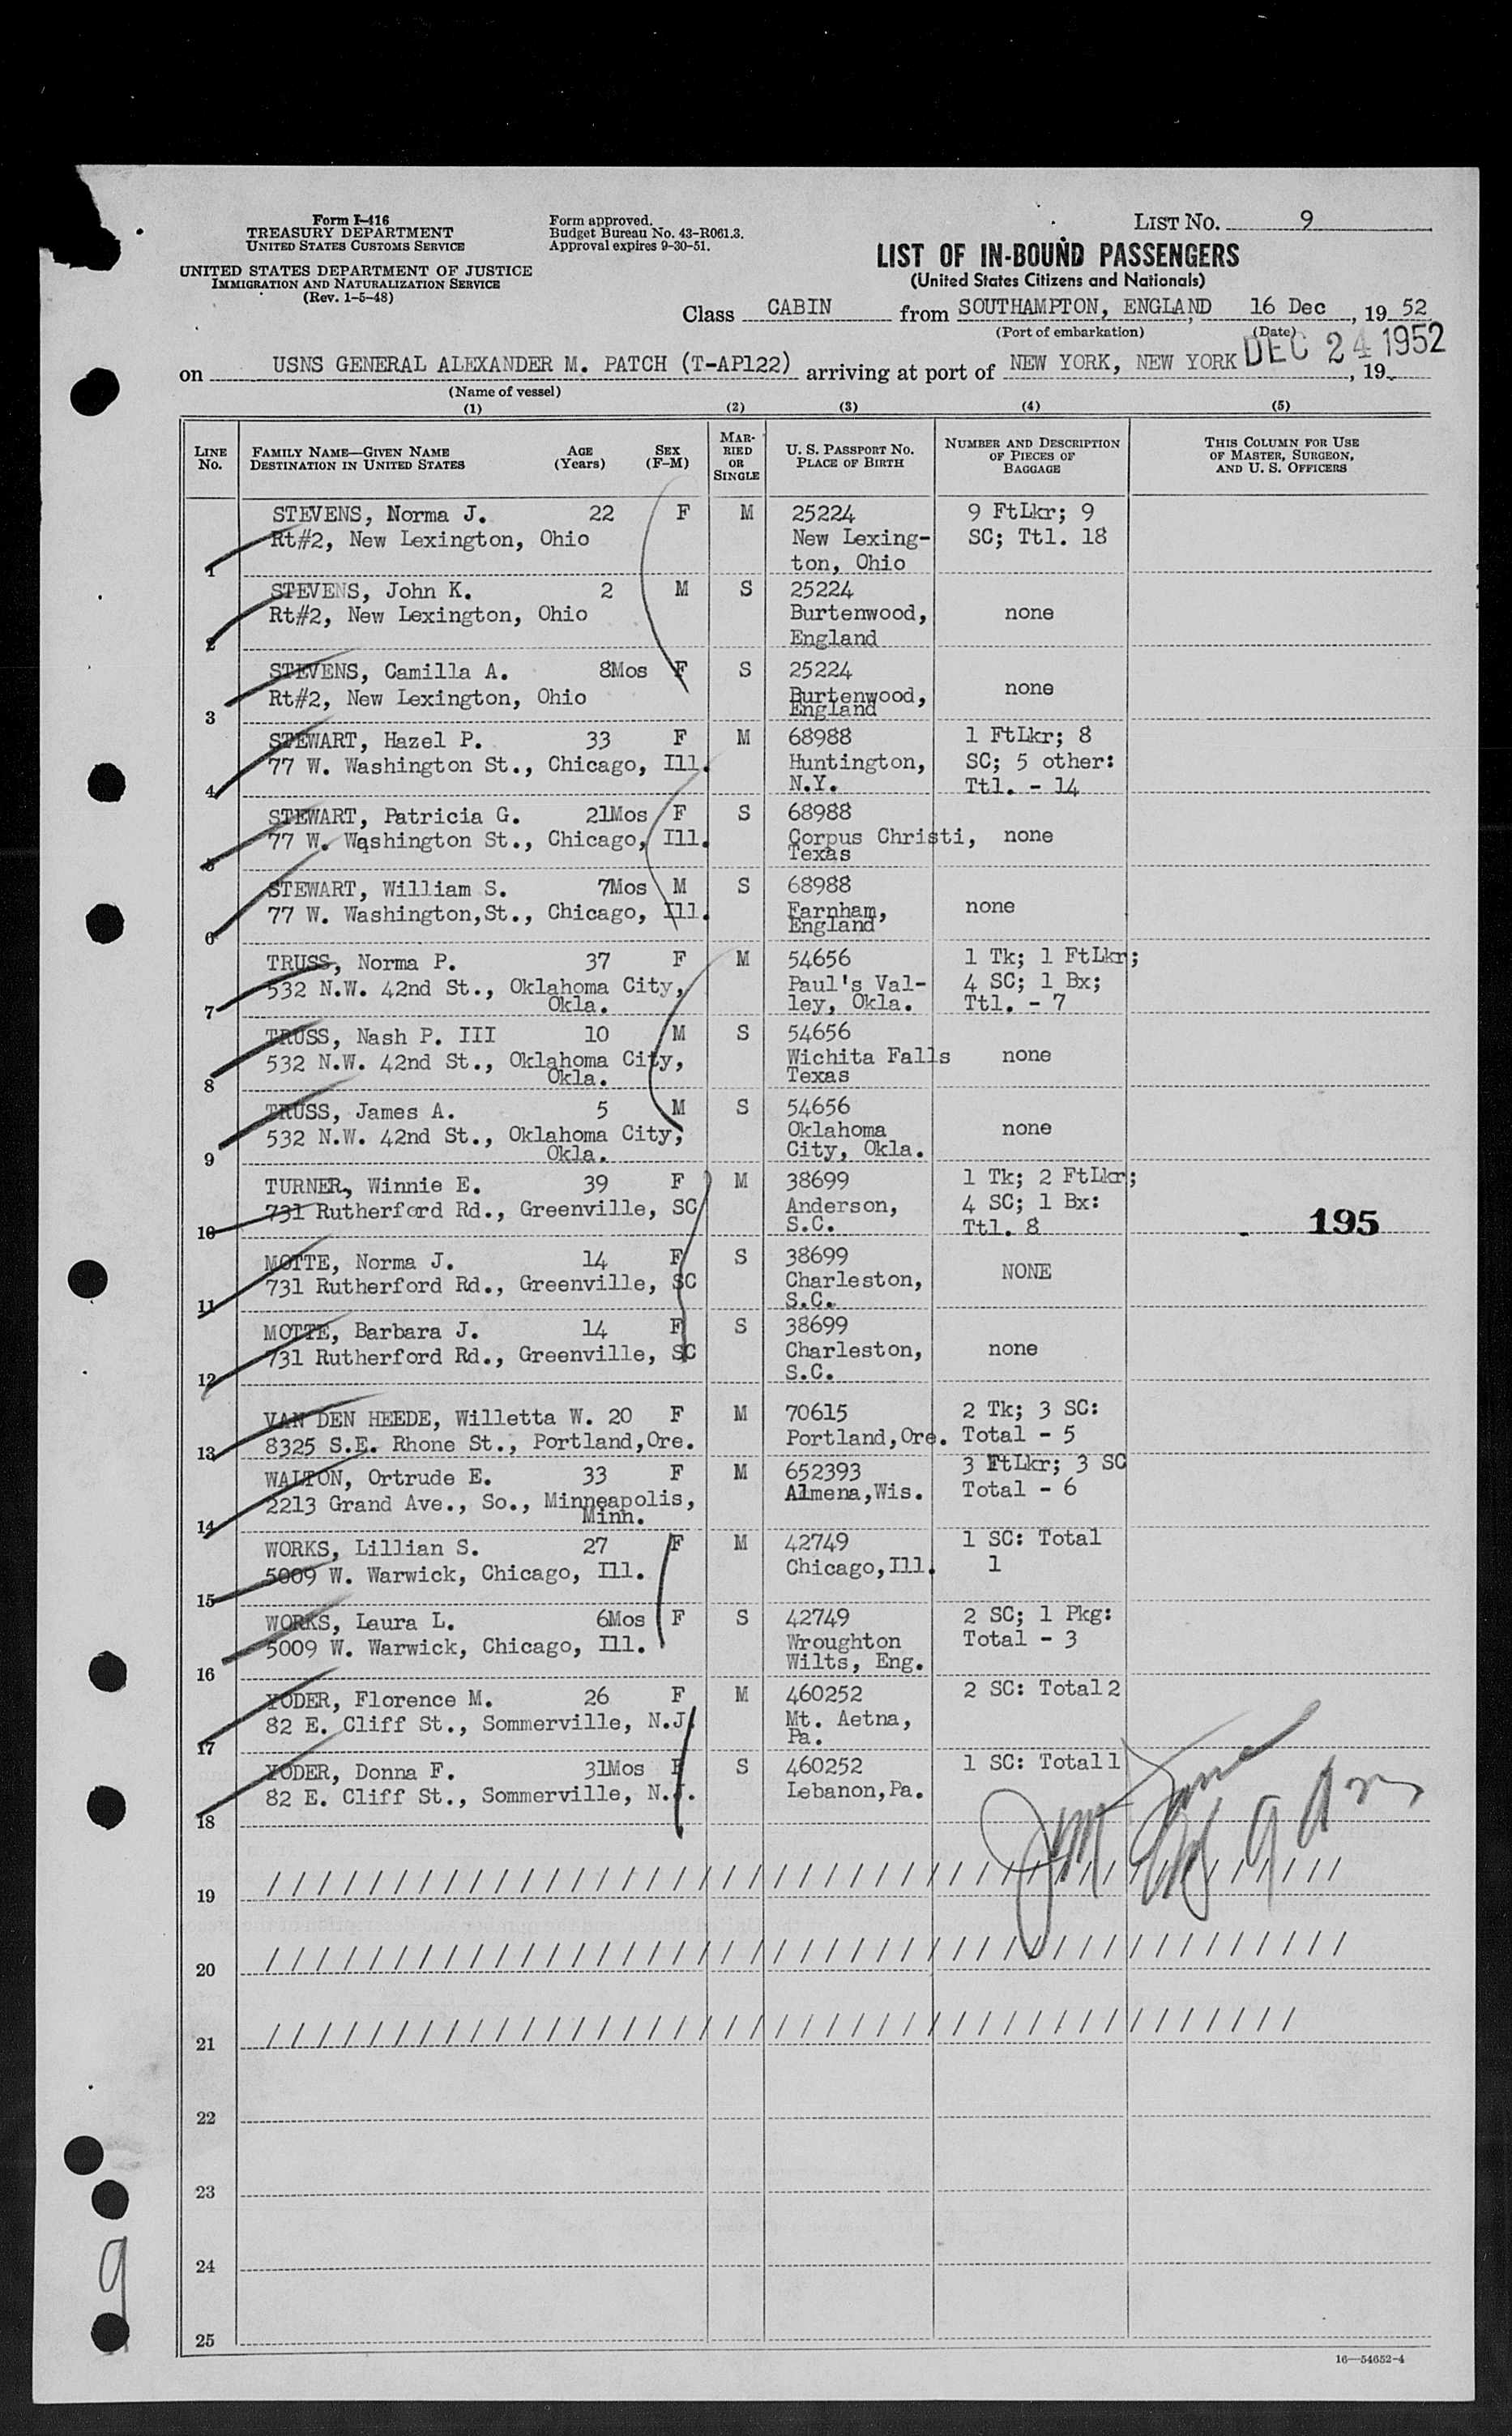 Form I-416
TREASURY DEPARTMENT
UNITED STATES CUSTOMS SERVICE
UNITED STATES DEPARTMENT OF JUSTICE
IMMIGRATION AND NATURALIZATION SERVICE
(Rev. 1-5-48)
Form approved.
Budget Bureau No. 43-R061.3.
Approval expires 9-30-51.
LIST NO. 9
LIST OF IN-BOUND PASSENGERS
(United States Citizens and Nationals)
Class CABIN from SOUTHAMPTON, ENGLAND, 16 Dec, 19 52
(Port of embarkation) (Date)
DEC 24 1952
on USNS GENERAL ALEXANDER M. PATCH (T-AP122) arriving at port of NEW YORK, NEW YORK, 19
(Name of vessel)
(1) (2) (3) (4) (5)
LINE NO. FAMILY NAME—GIVEN NAME DESTINATION IN UNITED STATES AGE (Years) SEX (F-M) MARRIED OR SINGLE U. S. PASSPORT NO. PLACE OF BIRTH NUMBER AND DESCRIPTION OF PIECES OF BAGGAGE THIS COLUMN FOR USE OF MASTER, SURGEON, AND U. S. OFFICERS
STEVENS, Norma J. 22 F M 25224 9 FtLkr; 9
Rt#2, New Lexington, Ohio New Lexing- SC; Ttl. 18
1 ton, Ohio
STEVENS, John K. 2 M S 25224
Rt#2, New Lexington, Ohio Burtenwood, none
2 England
STEVENS, Camilla A. 8Mos F S 25224
Rt#2, New Lexington, Ohio Burtenwood, none
3 England
STEWART, Hazel P. 33 F M 68988 1 FtLkr; 8
77 W. Washington St., Chicago, Ill. Huntington, SC; 5 other:
4 N.Y. Ttl. - 14
STEWART, Patricia G. 21Mos F S 68988
77 W. Washington St., Chicago, Ill. Corpus Christi, none
5 Texas
STEWART, William S. 7Mos M S 68988
77 W. Washington,St., Chicago, Ill. Farnham, none
6 England
TRUSS, Norma P. 37 F M 54656 1 Tk; 1 FtLkr;
532 N.W. 42nd St., Oklahoma City, Paul's Val- 4 SC; 1 Bx;
7 Okla. ley, Okla. Ttl. - 7
TRUSS, Nash P. III 10 M S 54656
532 N.W. 42nd St., Oklahoma City, Wichita Falls none
8 Okla. Texas
TRUSS, James A. 5 M S 54656
532 N.W. 42nd St., Oklahoma City, Oklahoma none
9 Okla. City, Okla.
TURNER, Winnie E. 39 F M 38699 1 Tk; 2 FtLkr;
731 Rutherford Rd., Greenville, SC Anderson, 4 SC; 1 Bx:
10 S.C. Ttl. 8 195
MOTTE, Norma J. 14 F S 38699
731 Rutherford Rd., Greenville, SC Charleston, NONE
11 S.C.
MOTTE, Barbara J. 14 F S 38699
731 Rutherford Rd., Greenville, SC Charleston, none
12 S.C.
VAN DEN HEEDE, Willetta W. 20 F M 70615 2 Tk; 3 SC:
13 8325 S.E. Rhone St., Portland,Ore. Portland,Ore. Total - 5
WALTON, Ortrude E. 33 F M 652393 3 FtLkr; 3 SC
2213 Grand Ave., So., Minneapolis, Almena,Wis. Total - 6
14 Minn.
WORKS, Lillian S. 27 F M 42749 1 SC: Total
15 5009 W. Warwick, Chicago, Ill. Chicago,Ill. 1
WORKS, Laura L. 6Mos F S 42749 2 SC; 1 Pkg:
5009 W. Warwick, Chicago, Ill. Wroughton Total - 3
16 Wilts, Eng.
YODER, Florence M. 26 F M 460252 2 SC: Total 2
82 E. Cliff St., Sommerville, N.J. Mt. Aetna,
17 Pa.
YODER, Donna F. 31Mos F S 460252 1 SC: Total 1
82 E. Cliff St., Sommerville, N.J. Lebanon,Pa.
18
19 / / / / / / / / / / / / / / / / / / / / / / / / / / / / / / / / / / / / / / / / / / /
20 / / / / / / / / / / / / / / / / / / / / / / / / / / / / / / / / / / / / / / / / / / /
21 / / / / / / / / / / / / / / / / / / / / / / / / / / / / / / / / / / / / / / / / /
22
23
24
25
9
16—54652-4